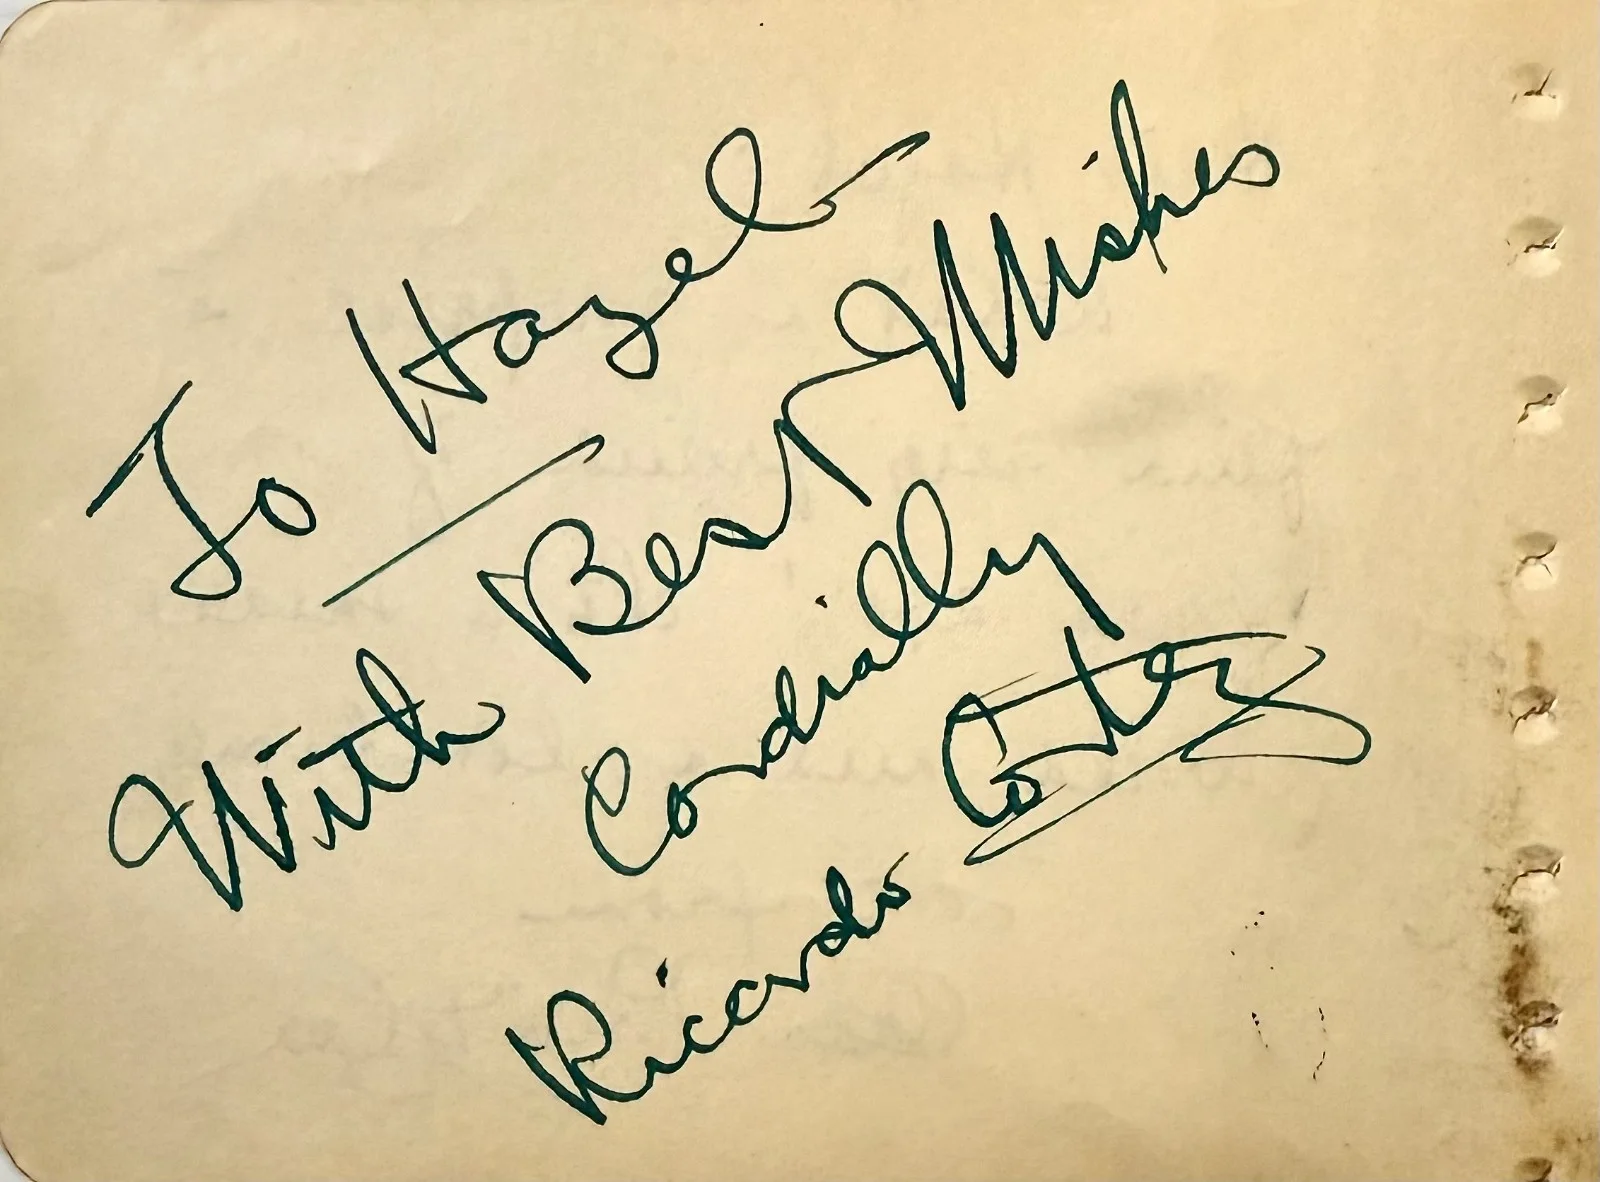 To Hazel
With Best Wishes
Cordially
Ricardo Cortez